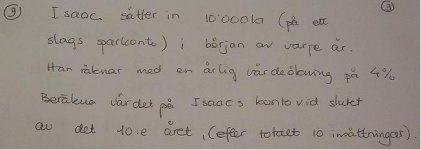 9 Isaac sätter in 10'000kr (på ett
slags sparkonto) i början av varje år.
Han räknar med en årlig värdeökning på 4%
Beräkna värdet på Isaacs konto vid slutet
av det 10:e året, (efter totalt 10 insättningar).